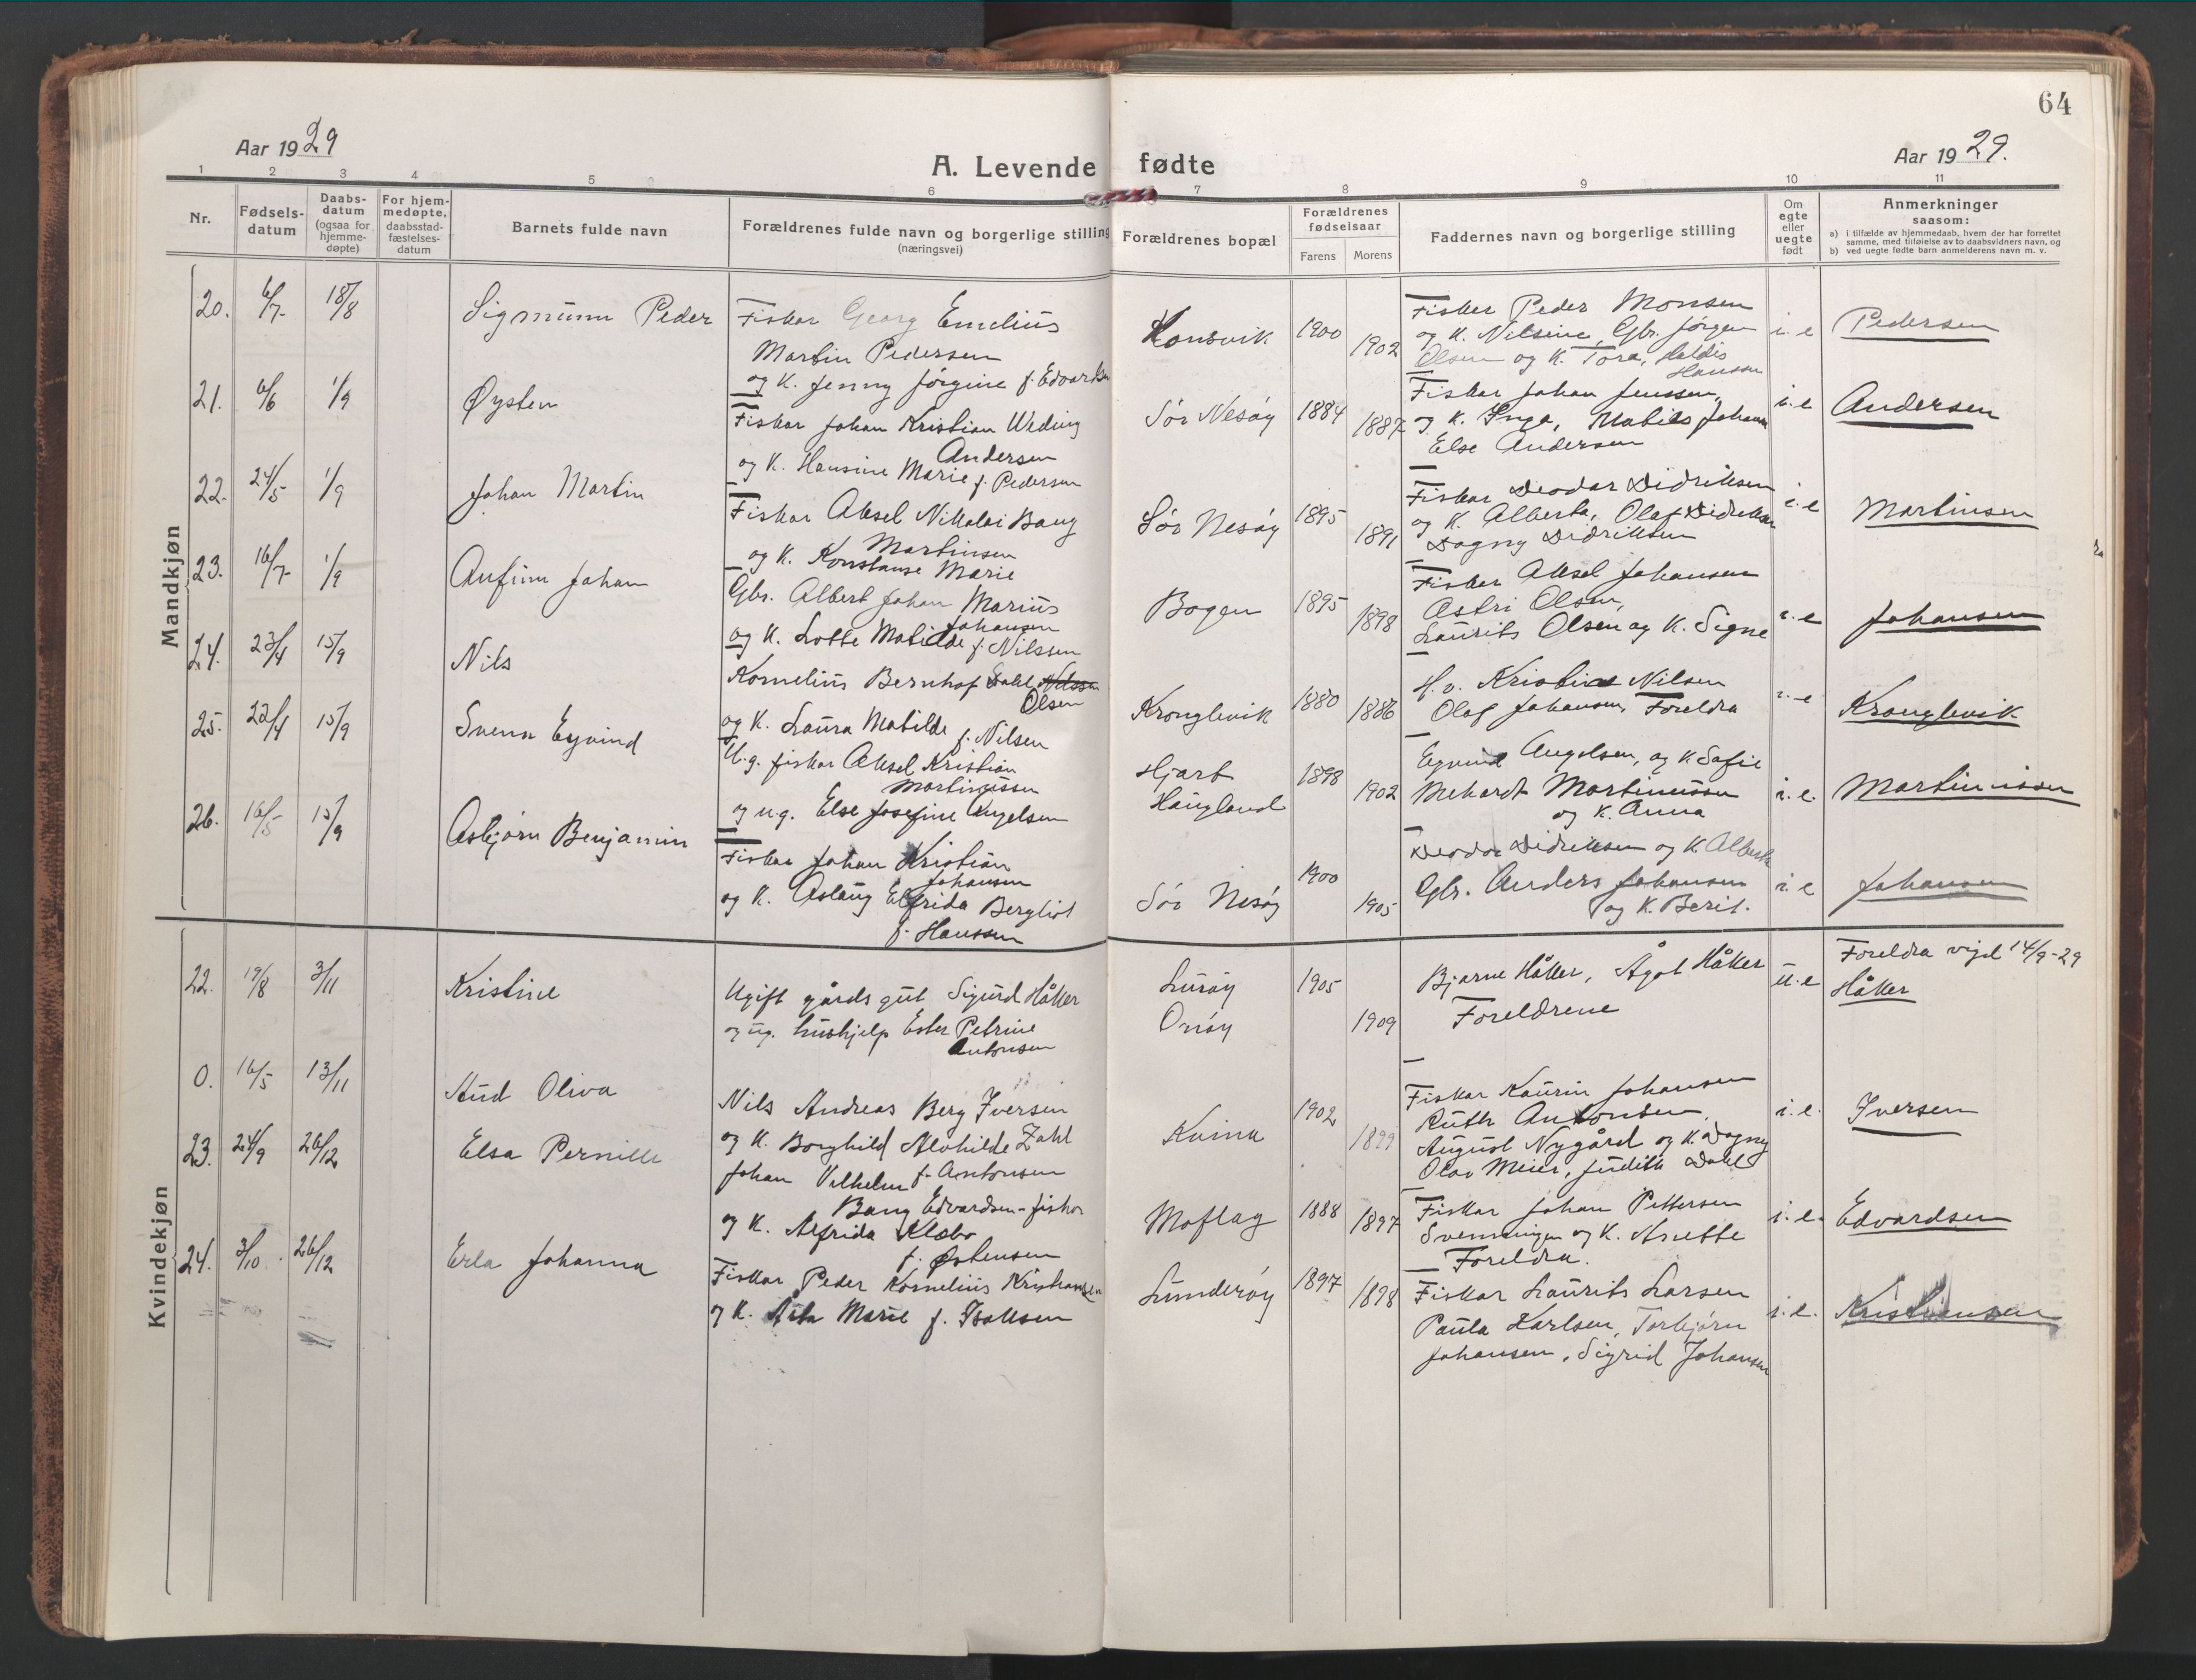 64
Aar 1929
A. Levende fødte
Aar 1929.
1 2 3 4 5 6 7 8 9 10 11
Nr.
Fødsels-
datum
Daabs-
datum
(ogsaa for
hjemme-
døpte)
For hjem-
medøpte,
daabsstad-
fæstelses-
datum
Barnets fulde navn
Forældrenes fulde navn og borgerlige stilling
(næringsvei)
Forældrenes bopæl
Forældrenes
fødselsaar
Farens Morens
Faddernes navn og borgerlige stilling
Om
egte
eller
uegte
født
Anmerkninger
saasom:
a) i tilfælde av hjemmedaab, hvem der har forrettet
samme, med tilføielse av to daabsvidners navn, og
b) ved uegte fødte barn anmelderens navn m. v.
Mandkjøn
20. 6/7 18/8 Sigmunn Peder
Fiskar Georg Emelius
Martin Pedersen
og K. Jenny Jørgine f. Edvardsen
Konsvik 1900 1902
Fisker Peder Monsen
og K. Nilsine, Gbr. Jørgen
Olsen og K. Tora, Haldis
Hanssen
i. e Pedersen
21. 6/6 1/9 Øysten
Fiskar Johan Kristian Weding
Andersen
og K. Hansine Marie f. Pedersen
Sør Nesøy 1884 1887
Fiskar Johan Jenssen,
og K. Inga, Johan
Else Andersen
i. e Andersen
22. 24/5 1/9 Johan Martin
Fiskar Aksel Nikolai Bang
Martinsen
og K. Konstanse Marie
Sør Nesøy 1895 1891
Fiskar Deodar Didriksen
og K. Alberta, Olaf Didriksen
Dagny Didriksen
i. e Martinsen
23. 16/7 1/9 Anfinn Johan
Gbr. Albert Johan Marius
Johansen
og K. Lotte Matilde f. Nilssen
Bogen 1895 1898
Fisker Aksel Johansen
Astri Olsen,
Laurits Olsen og K. Signe
i. e Johansen
24. 23/4 15/9 Nils
Kornelius Bernhof Dahl Nilssen
Olsen
og K. Laura Matilde f. Nilsen
Kronglevik 1880 1886
H. v. Kristine Nilsen
Olaf Johansen, Foreldra
i. e Kronglevik
25. 22/4 15/9 Svenn Eyvind
U. g. fiskar Aksel Kristian
Martinussen
og ug. Else Josefine Angelsen
Hjart
Haugland
1898 1902
Eyvind Angelsen, og K. Safie
Mekardt Martinussen
og K. Anna
i. e. Martinussen
26. 16/5 15/9 Asbjørn Benjamin
Fiskar Johan Kristian
Johansen
og K. Aslaug Elfrida Bergliot
f. Hanssen
Sør Nesøy 1900 1905
Deodor Didriksen og K. Alberta
Gbr. Anders Johansen
og K. Berit.
i. e Johansen
Kvindekjøn
22. 19/8 3/11 Kristine
Ugift gårdsgut Sigurd Håker
og ug. hushjelp Ester Petrine
Antonsen
Lurøy
Onøy
1905 1909
Bjarne Håker, Ågot Håker
Foreldrene
u. e
Foreldra vigd 14/9-29
Håker
0. 16/5 13/11 Aud Oliva
Nils Andreas Berg Iversen
og K. Borghild Alvhilde Zahl
f. Antonsen
Kvina 1902 1899
Fiskar Kaurin Johansen
Ruth Antonsen,
August Nygård og K. Dagny
Olav Meier, Judith Dahl
i. e. Iversen
23. 24/9 26/12 Elsa Pernille
Johan Vilhelm
Bang Edvardsen - fiskar
og K. Alfrida Klæbo
f. Østensen
Moflag 1888 1897
Fiskar Johan Pettersen
Svenningen og K. Anette
Foreldra.
i. e. Edvardsen
24. 3/10 26/12 Erla Johanna
Fiskar Peder Kornelius Kristiansen
og K. Asta Marie f. Isaksen
Sunderøy 1897 1898
Fiskar Laurits Larsen
Paula Karlsen, Torbjørn
Johansen, Sigrid Johansen
i. e. Kristiansen